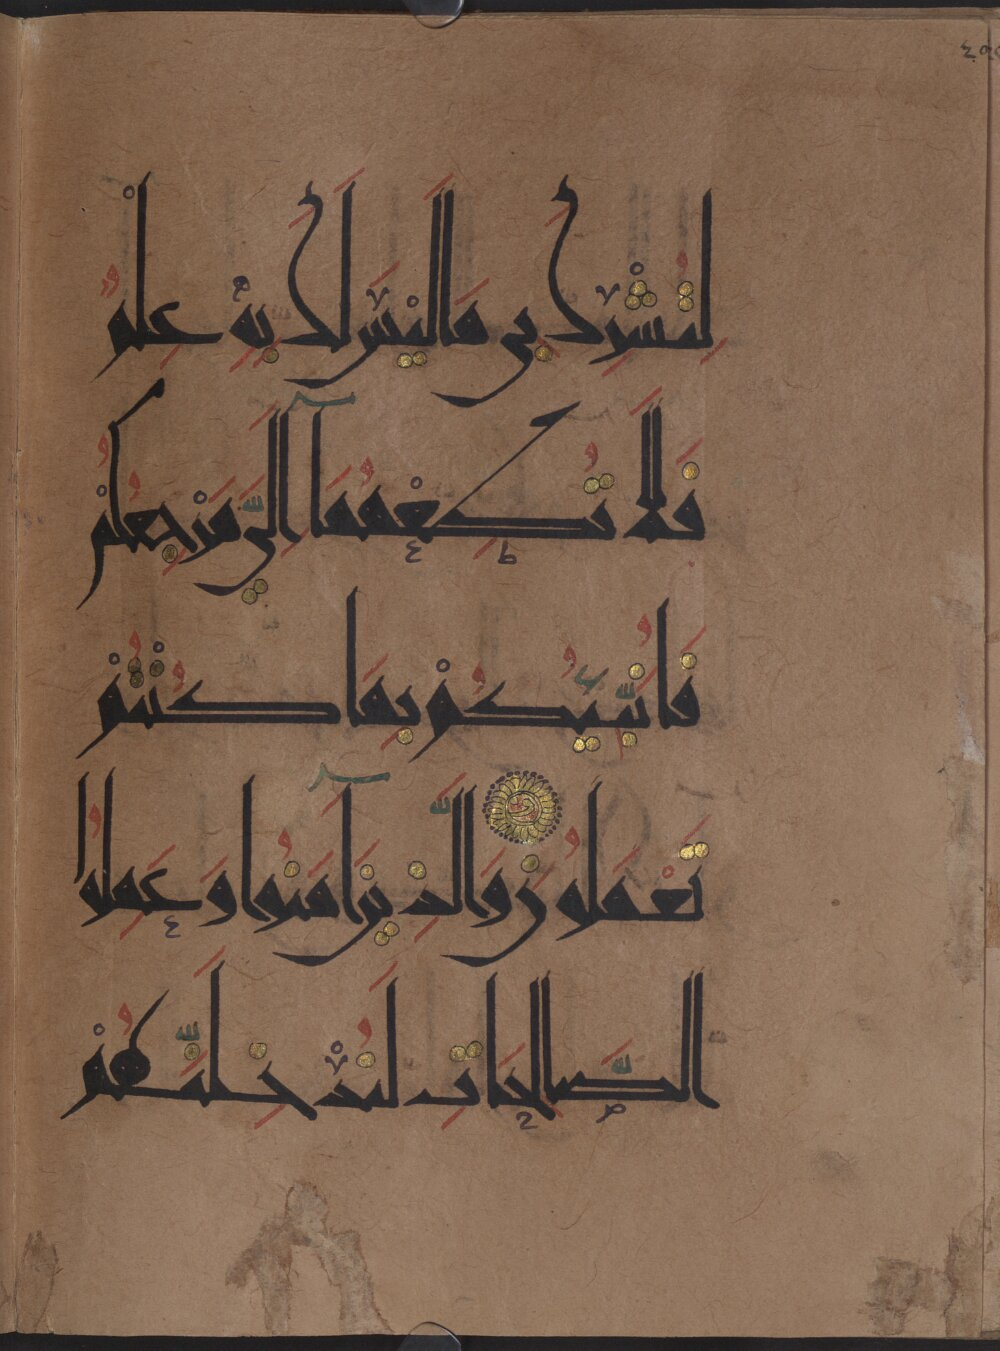 لِتُشْرِكَ بِي مَا لَيْسَ لَكَ بِهِ عِلْمٌ
فَلَا تُطِعْهُمَا إِلَيَّ مَرْجِعُكُمْ
فَأُنَبِّئُكُمْ بِمَا كُنْتُمْ
تَعْمَلُونَ وَالَّذِينَ آمَنُوا وَعَمِلُوا
الصَّالِحَاتِ لَنُدْخِلَنَّهُمْ